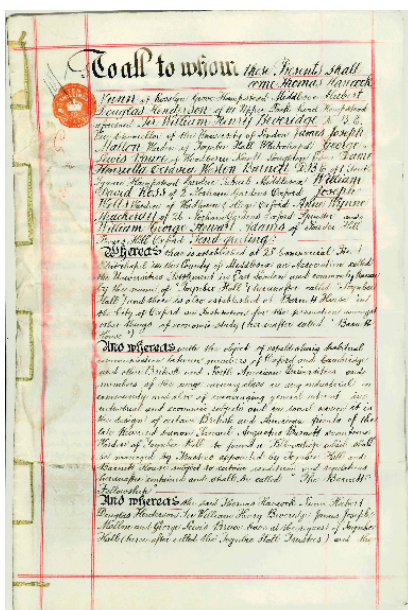 To all to whom these Presents shall
come Thomas Hancock
Nunn of Rosslyn Grove Hampstead Middlesex Hubert
Douglas Henderson of Upper Park Road Hampstead
aforesaid Sir William Henry Beveridge K.C.B.
of the University of London James Joseph
Mallon Warden of Toynbee Hall Whitechapel George
Lewis Bruce of Dame
Henrietta Octavia Weston Barnett D.B.E. of 1 South
Square Hampstead Garden Suburb Middlesex William
David Ross of Gardens Oxford Joseph
Wells Warden of Wadham College Oxford Annie Wynne
of Gardens Oxford Spinster and
William George Stewart Adams of
Hill Oxford Send greeting:
Whereas there is established at 28 Commercial
Whitechapel in the County of Middlesex an Association called
the Universities Settlement in East London and commonly known
by the name of Toynbee Hall (hereinafter called "Toynbee
Hall") and there is also established at Barnett House in
the City of Oxford an Institution for the promotion amongst
other things of economic study (hereinafter called "Barnett
House")
And whereas with the object of establishing habitual
communication between members of Oxford and Cambridge
and other British and North American Universities and
members of the wage earning class in any industrial
community and also of encouraging general interest in
industrial and economic subjects and in social service it is
the design of certain British and American friends of the
late Reverend Canon Samuel Augustus Barnett sometime
Warden of Toynbee Hall to found a Fellowship which shall
be managed by Trustees appointed by Toynbee Hall and
Barnett House subject to certain conditions and regulations
hereinafter contained and shall be called "The Barnett
Fellowship"
And whereas the said Thomas Hancock Nunn Hubert
Douglas Henderson Sir William Henry Beveridge James Joseph
Mallon and George Lewis Bruce have at the request of Toynbee
Hall (hereinafter called the Toynbee Hall Trustees) and the